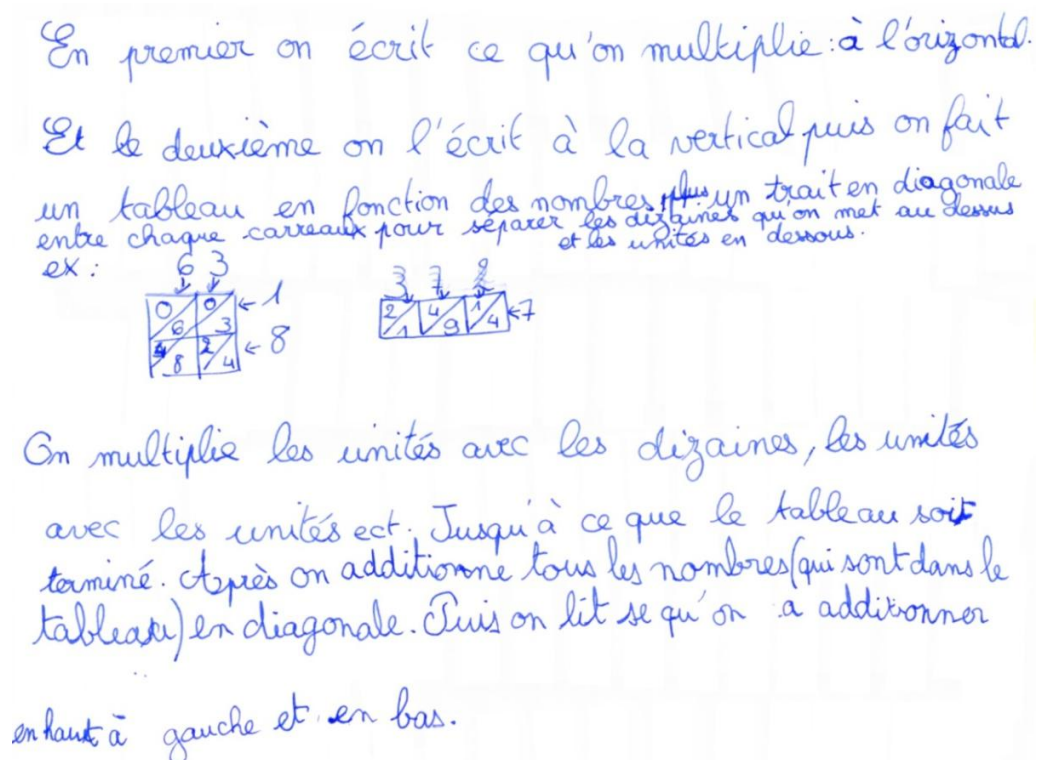 En premier on écrit ce qu'on multiplie : à l'orizontal.
Et le deuxième on l'écrit à la vertical puis on fait
un tableau en fonction des nombres, plus un trait en diagonale
entre chaque carreaux pour séparer les dizaines qu'on met au dessus
et les unités en dessous.
ex :
6 3
0 6 0 3 ← 1
4 8 2 4 ← 8
3 7 2
2 1 4 9 1 4 ← 7
On multiplie les unités avec les dizaines, les unités
avec les unités ect. Jusqu'à ce que le tableau soit
terminé. Après on additionne tous les nombres (qui sont dans le
tableau) en diagonale. Puis on lit se qu'on a additionner
en haut à gauche et en bas.